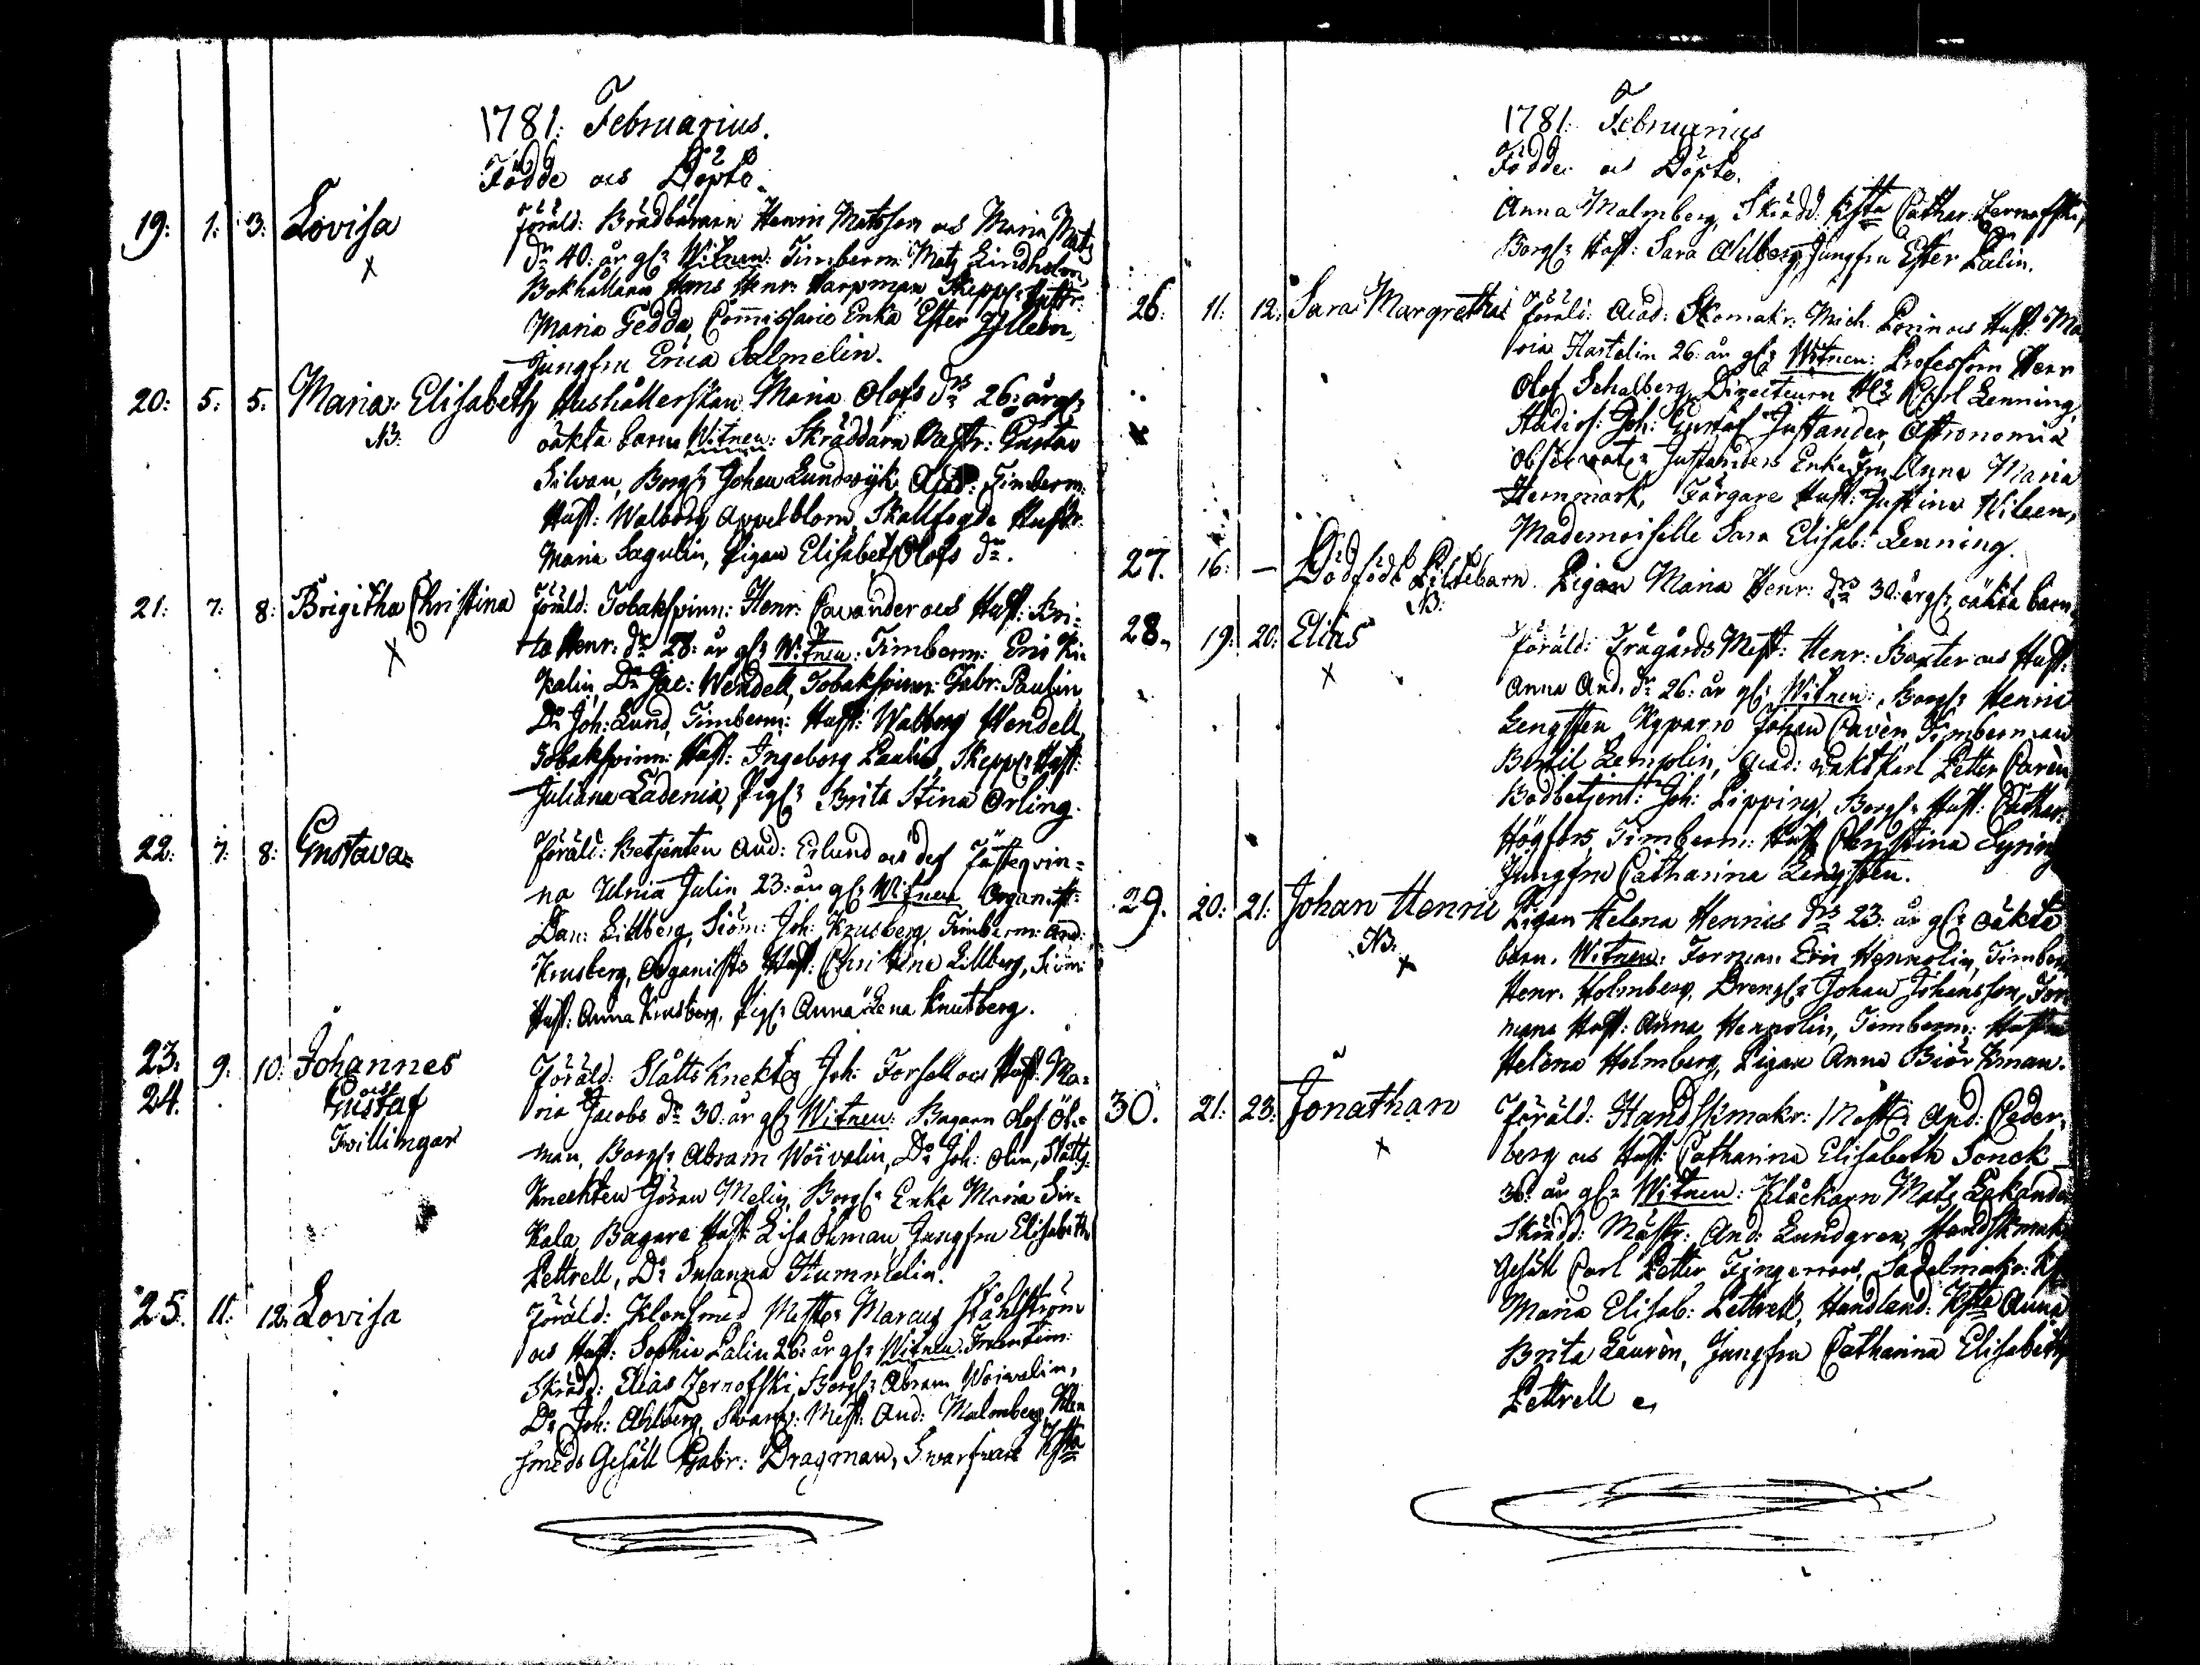 1781: Februarius.
Födde och Döpte.
19: 1: 3: Lovisa Föräld: Brädbäraren Henric Matsson och Maria Mats
x dr 40: år gl: Witnen: Timberm: Matz Lindholm,
Bokhållaren Hans Henr: Harpman, Skepps: Hustr:
Maria Gedda, Commissarie Enka Ester
Jungfru Erica Salmelin.
20: 5: 5: Maria Elisabeth Hushållerskan Maria Olofs dr 26: år gl:
NB: oäkta barn Witnen: Skräddarn Mästr: Gustav
Silvan, Borg: Johan Lundwijk, Acad: Timberm:
Hust: Walborg Appelblom, Skallfogde Hustr:
Maria Sagulin, Pigan Elisabet Olofs dr.
21: 7: 8: Brigitha Christina Föräld: Tobakspinn: Henr: Cavander och Hust: Bri-
x ta Henr: dr 28: år gl: Witnen: Timberm: Eric Ki-
kalin, Do Jac: Wendell, Tobakspinn: Gabr: Paulin,
Do Joh: Lund, Timberm: Hust: Walborg Wendell,
Tobakspinn: Hust: Ingeborg Paulin, Skepps: Hust:
Juliana Ladenia, Pig: Brita Stina Orling.
22: 7: 8: Gustava Föräld: Betjenten And: Edlund och dess Fästeqvin-
na Ulrica Julin 23: år gl: Witnen Organist:
Dan: Lillberg, Siöm: Joh: Krusberg, Timberm: And:
Krusberg, Organists Hust: Christina Lillberg, Siöm:
Hust: Anna Krusberg, Pig: Anna Lena Knutberg.
23: 9: 10: Johannes Föräld: Slåtts Knekten Joh: Forsell och Hust: Ma-
24. och Gustaf ria Jacobs dr 30: år gl: Witnen: Bagarn Olof Öh-
Twillingar man, Borg: Abram Woivalin, Do Joh: Olin, Slåtts-
Knechten Göran Melin, Borg: Enka Maria Sir-
kala, Bagare Hust: Lisa Öhman, Jungfru Elisabeth
Pettrell, Do Susanna Hummelin.
25. 11: 12: Lovisa Föräld: Klensmed Mest: Marcus Ståhlström
och Hust: Sophia Palin 26: år gl: Witnen:
Skrädd: Elias Zernofski, Borg: Abram Woivalin,
Do Joh: Ahlberg, Swarf: Mest: And: Malmberg, Klen
smeds Gesäll Gabr: Dragman, Swarfvare Hsta
1781: Februarius
Födde och Döpte.
Anna Malmberg, Skrädd: Hsta Cathar: Zernofski,
Borg: Hust: Sara Ahlberg, Jungfru Ester Palin.
26: 11: 12: Sara Margretha Föräld: Acad: Skomakr: Mich: Posin och Hust: Ma
ria Hastelin 26: år gl: Witnen: Professorn Herr
Olof Schalberg, Directeurn Hr Carl Lenning,
Studios: Joh: Gustaf Justander, Astronomiæ
Observat: Justanders Enka Fru Anna Maria
Hernmark, Färgare Hust: Justina Wileen,
Mademoiselle Sara Elisab: Lenning.
27. 16: — Dödfödt Piltebarn. Pigan Maria Henr: dr 30: år gl: oäkta barn,
NB:
28. 19: 20: Elias Föräld: Trägårds Mest: Henr: Baxter och Hust:
x Anna And: dr 26: år gl: Witnen: Borg: Henric
Lengsten, Kyparn Johan Cavèn, Timberman
Bertil Lempelin, Acad: Vaktkarl Petter Cavèn,
Bodbetjent: Joh: Pipping, Borg: Hust: Cathar:
Högfors, Timberm: Hust: Christina Syring
Jungfru Catharina Lengsten.
29. 20: 21: Johan Henric Pigan Helena Henrics dr 23: år gl: oäkta
NB: x barn. Witnen: Forman Eric Hennolin, Timber
Henr: Holmberg, Dreng: Johan Johansson, For
mans Hust: Anna Hennolin, Timberm: Hustru
Helena Holmberg, Pigan Anna Biörkman.
30. 21: 23: Jonathan Föräld: Handskmakr: Mäst: And: Ceder-
x berg och Hust: Catharina Elisabeth Sonck
30: år gl: Witnen: Klåckarn Mats
Skrädd: Mästr: And: Lundgren, Handskmak
Gesäll Carl Petter Sadelmakr:
Maria Elisab: Pettrell, Handland: Hsta Anna
Brita Laurèn, Jungfru Catharina Elisabeth
Pettrell